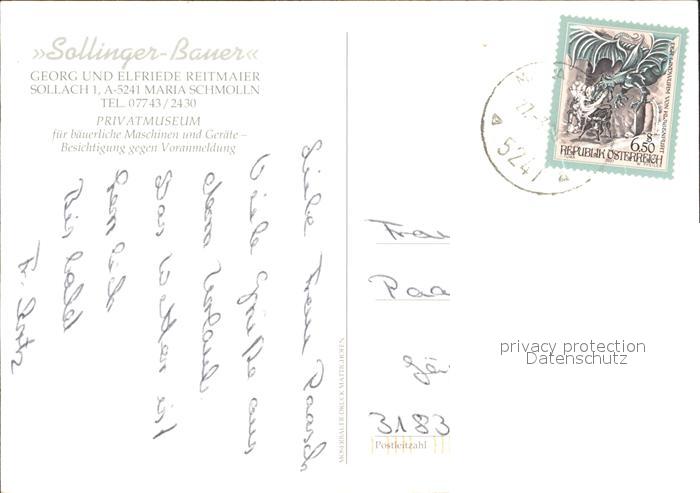 »Sollinger-Bauer«
GEORG UND ELFRIEDE REITMAIER
SOLLACH 1, A-5241 MARIA SCHMOLLN
TEL. 07743/2430
PRIVATMUSEUM
für bäuerliche Maschinen und Geräte –
Besichtigung gegen Voranmeldung
Liebe Frau
Viele Grüße aus
dem Urlaub.
Das Wetter ist
Bis bald
Fr.
MOSERBAUER DRUCK MATTIGHOFEN
5241
DER LINDWURM VON KLAGENFURT
S
6.50
REPUBLIK ÖSTERREICH
Frau
Paa
3183
Postleitzahl
privacy protection
Datenschutz